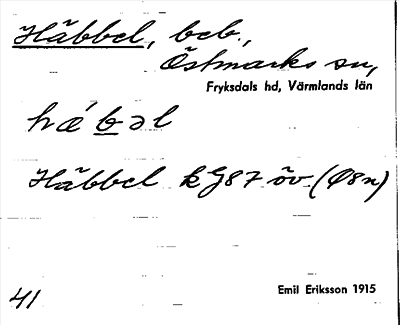 Häbbel, beb.,
Östmarks sn,
Fryksdals hd, Värmlands län
hæ´bəl
Häbbel kG87 öv (Ø8n)
41
Emil Eriksson 1915